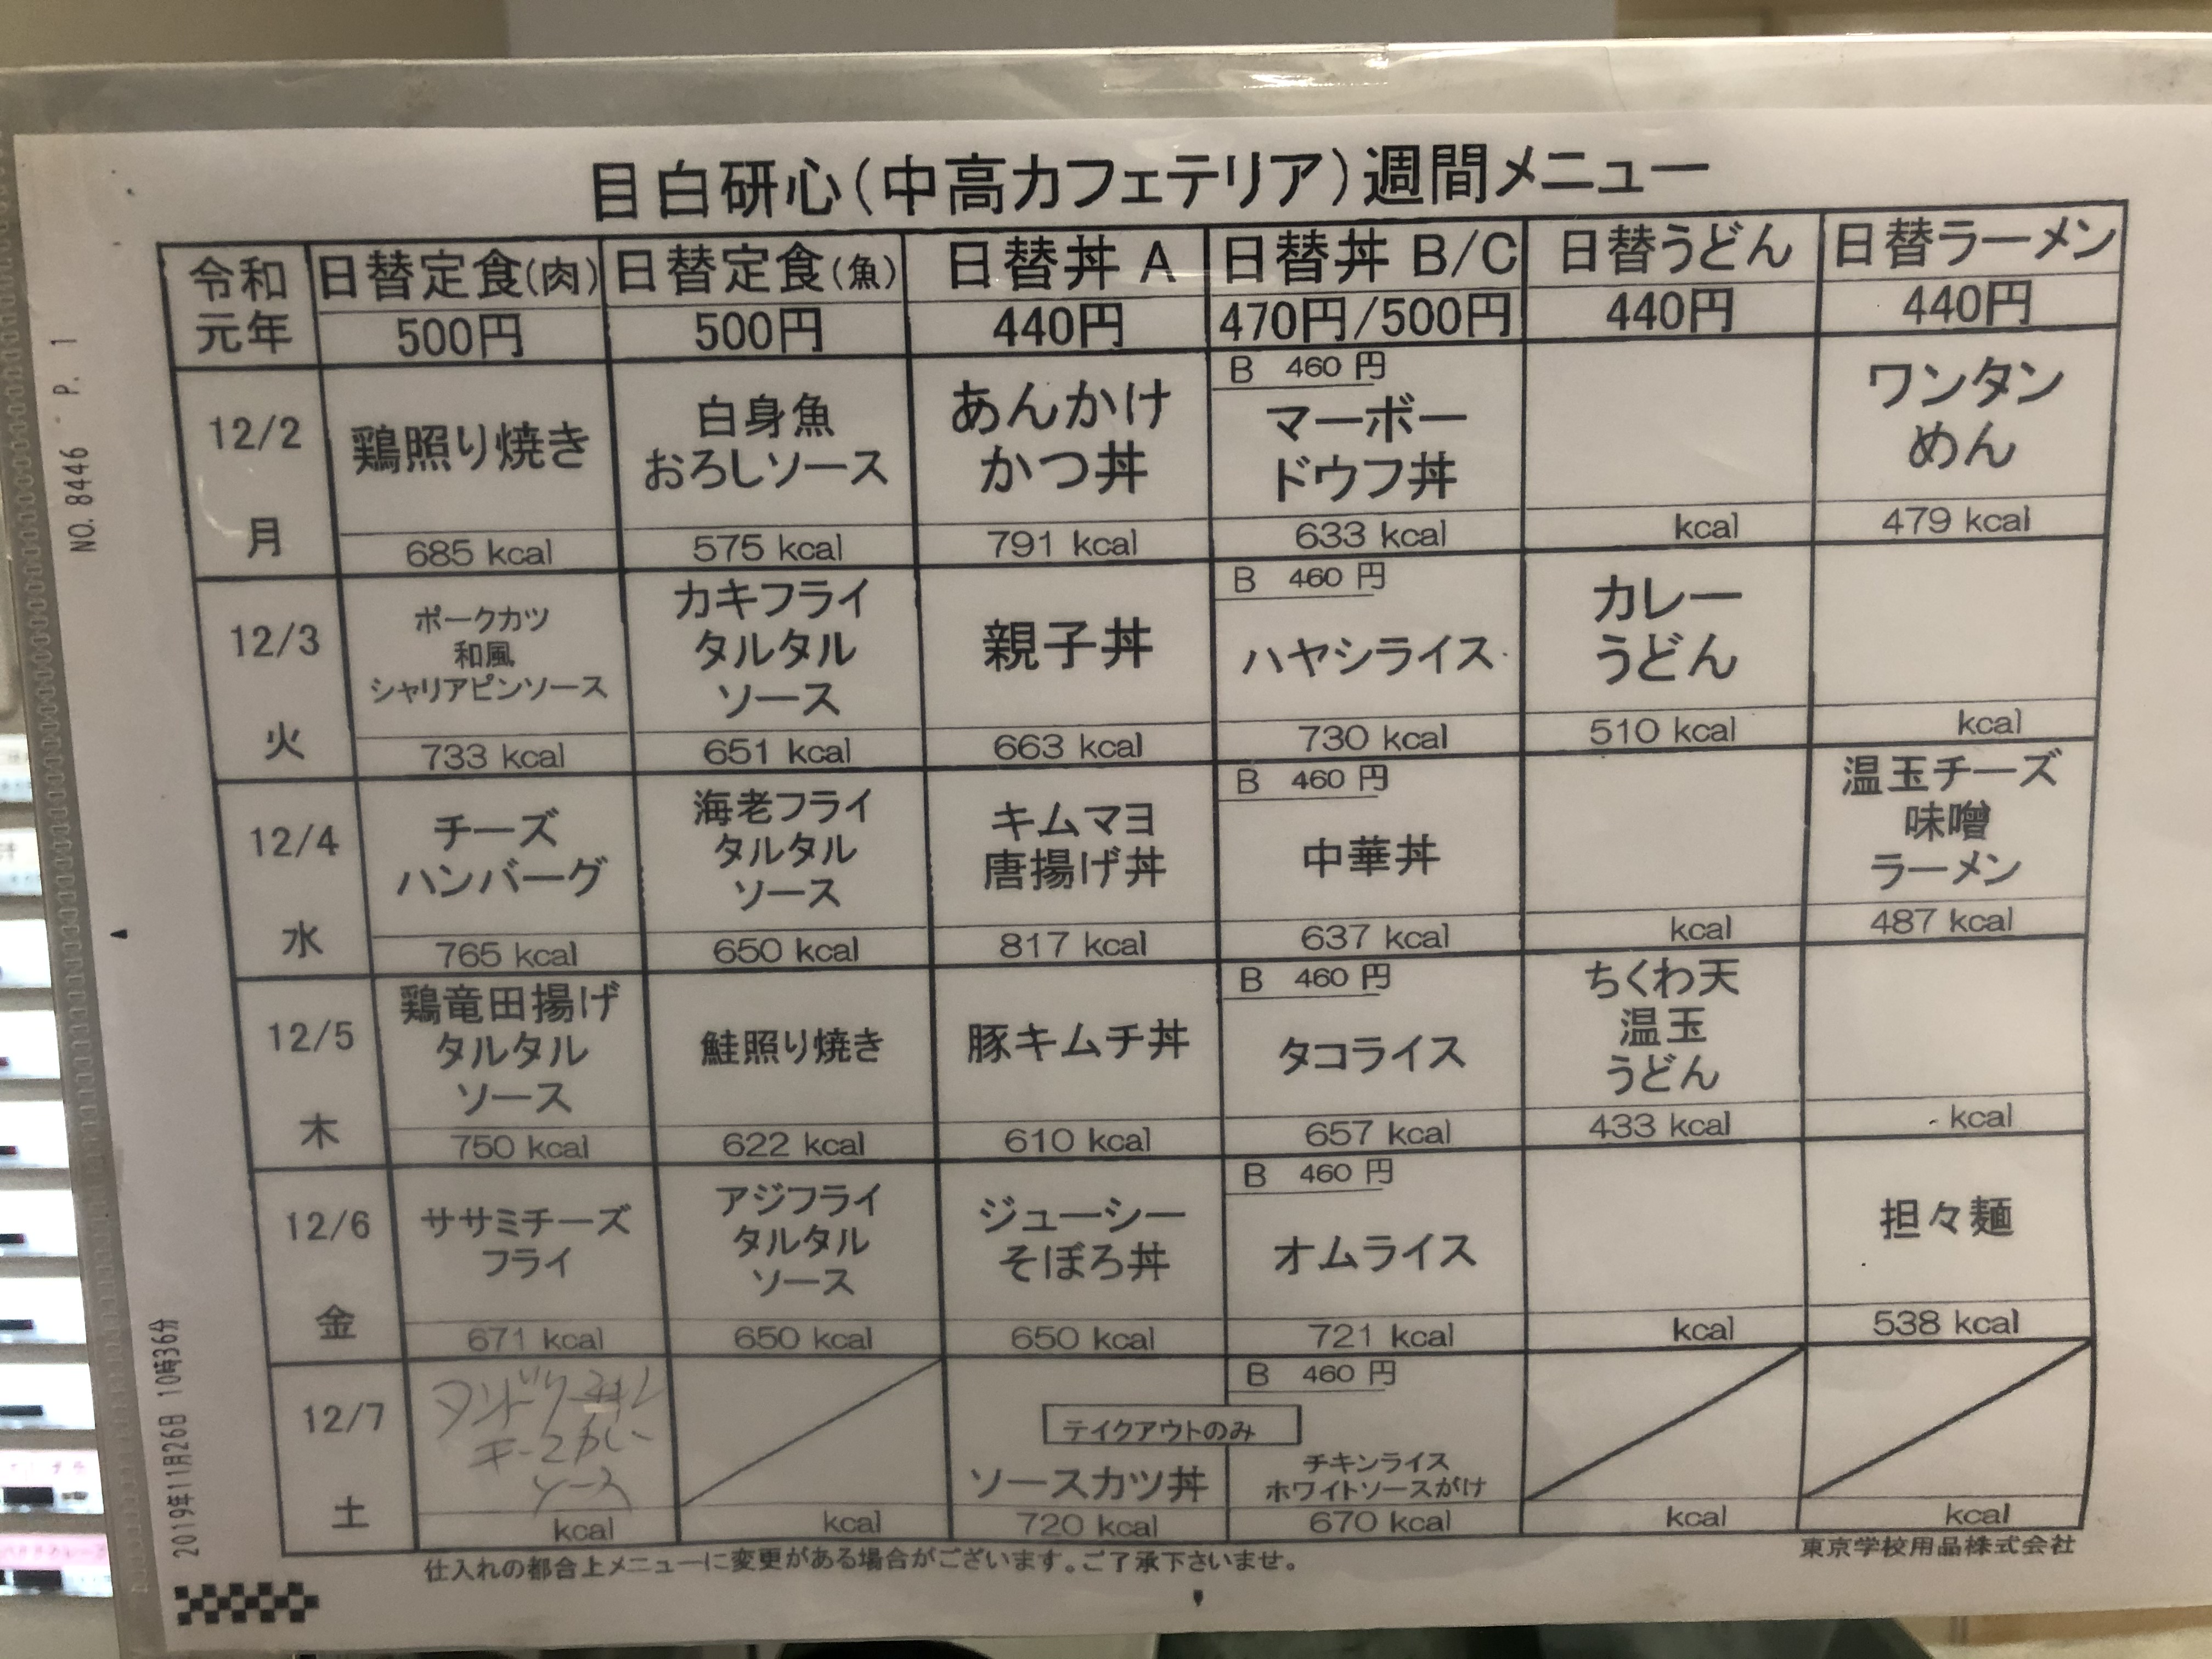 目白研心（中高カフェテリア）週間メニュー
令和
元年
日替定食(肉)
500円
日替定食(魚)
500円
日替丼 A
440円
日替丼 B/C
470円/500円
日替うどん
440円
日替ラーメン
440円
12/2
月
鶏照り焼き
685 kcal
白身魚
おろしソース
575 kcal
あんかけ
かつ丼
791 kcal
B 460 円
マーボー
ドウフ丼
633 kcal
kcal
ワンタン
めん
479 kcal
12/3
火
ポークカツ
和風
シャリアピンソース
733 kcal
カキフライ
タルタル
ソース
651 kcal
親子丼
663 kcal
B 460 円
ハヤシライス
730 kcal
カレー
うどん
510 kcal
kcal
12/4
水
チーズ
ハンバーグ
765 kcal
海老フライ
タルタル
ソース
650 kcal
キムマヨ
唐揚げ丼
817 kcal
B 460 円
中華丼
637 kcal
kcal
温玉チーズ
味噌
ラーメン
487 kcal
12/5
木
鶏竜田揚げ
タルタル
ソース
750 kcal
鮭照り焼き
622 kcal
豚キムチ丼
610 kcal
B 460 円
タコライス
657 kcal
ちくわ天
温玉
うどん
433 kcal
kcal
12/6
金
ササミチーズ
フライ
671 kcal
アジフライ
タルタル
ソース
650 kcal
ジューシー
そぼろ丼
650 kcal
B 460 円
オムライス
721 kcal
kcal
担々麺
538 kcal
12/7
土
ソース
kcal
kcal
テイクアウトのみ
ソースカツ丼
720 kcal
B 460 円
チキンライス
ホワイトソースがけ
670 kcal
kcal
kcal
仕入れの都合上メニューに変更がある場合がございます。ご了承下さいませ。
東京学校用品株式会社
NO. 8446 P. 1
2019年11月26日 10時36分